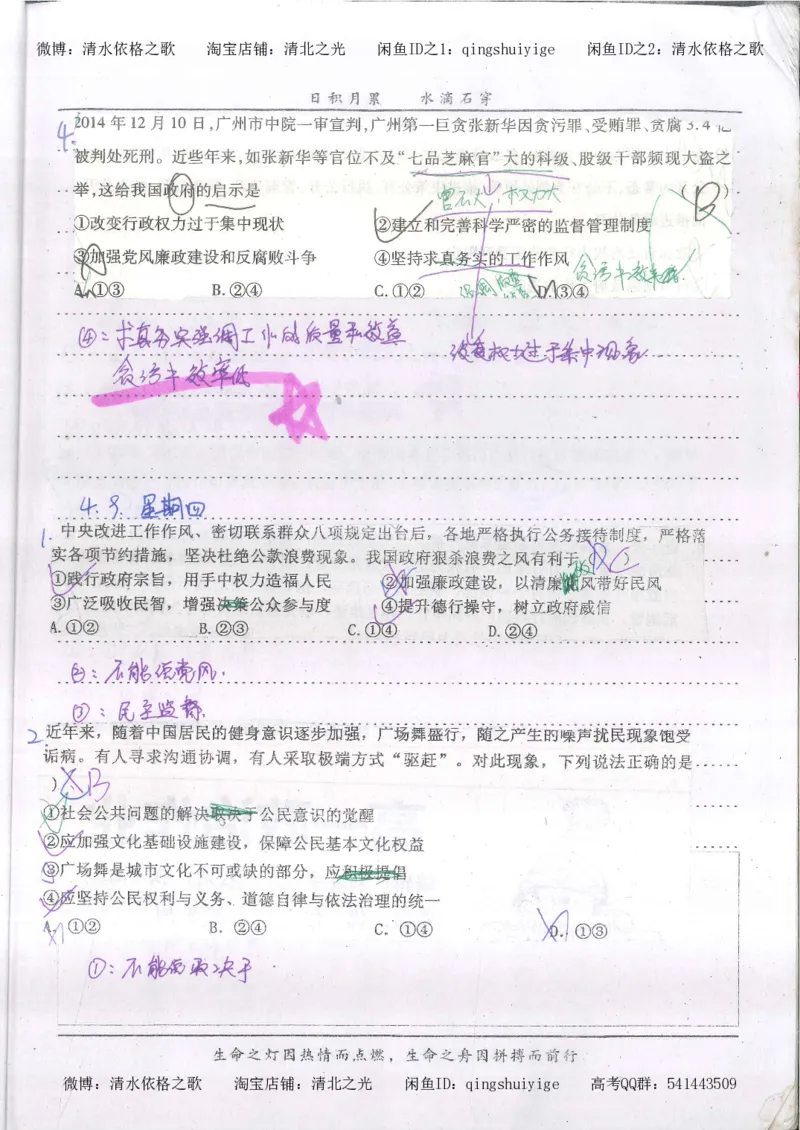 微博：清水依格之歌 淘宝店铺：清北之光 闲鱼ID之1：qingshuiyige 闲鱼ID之2：清水依格之歌
日积月累 水滴石穿
4. 2014年12月10日,广州市中院一审宣判,广州第一巨贪张新华因贪污罪、受贿罪、贪腐3.4亿
被判处死刑。近些年来,如张新华等官位不及“七品芝麻官”大的科级、股级干部频现大盗之
举,这给我国政府的启示是 B )
官不大,权力大
①改变行政权力过于集中现状 ②建立和完善科学严密的监督管理制度
③加强党风廉政建设和反腐败斗争 ④坚持求真务实的工作作风
贪污≠效率低
A.①③ B.②④ C.①② D.③④
强调质量
④：求真务实强调工作的质量和效益
没有权力过于集中现象
贪污≠效率低
4.9. 星期四
1. 中央改进工作作风、密切联系群众八项规定出台后，各地严格执行公务接待制度，严格落
实各项节约措施，坚决杜绝公款浪费现象。我国政府狠杀浪费之风有利于 C )
①践行政府宗旨，用手中权力造福人民 ②加强廉政建设，以清廉 风带好民风
③广泛吸收民智，增强决策公众参与度 ④提升德行操守，树立政府威信
A.①② B.②③ C.①④ D.②④
②：不能倡党风.
③：民主监督.
2 近年来，随着中国居民的健身意识逐步加强，广场舞盛行，随之产生的噪声扰民现象饱受
诟病。有人寻求沟通协调，有人采取极端方式“驱赶”。对此现象，下列说法正确的是
) B
①社会公共问题的解决取决于公民意识的觉醒
②应加强文化基础设施建设，保障公民基本文化权益
③广场舞是城市文化不可或缺的部分，应积极提倡
④应坚持公民权利与义务、道德自律与依法治理的统一
A. ①② B. ②④ C. ①④ D. ①③
①：不能面取决于
生命之灯因热情而点燃，生命之舟因拼搏而前行
微博：清水依格之歌 淘宝店铺：清北之光 闲鱼ID：qingshuiyige 高考QQ群：541443509